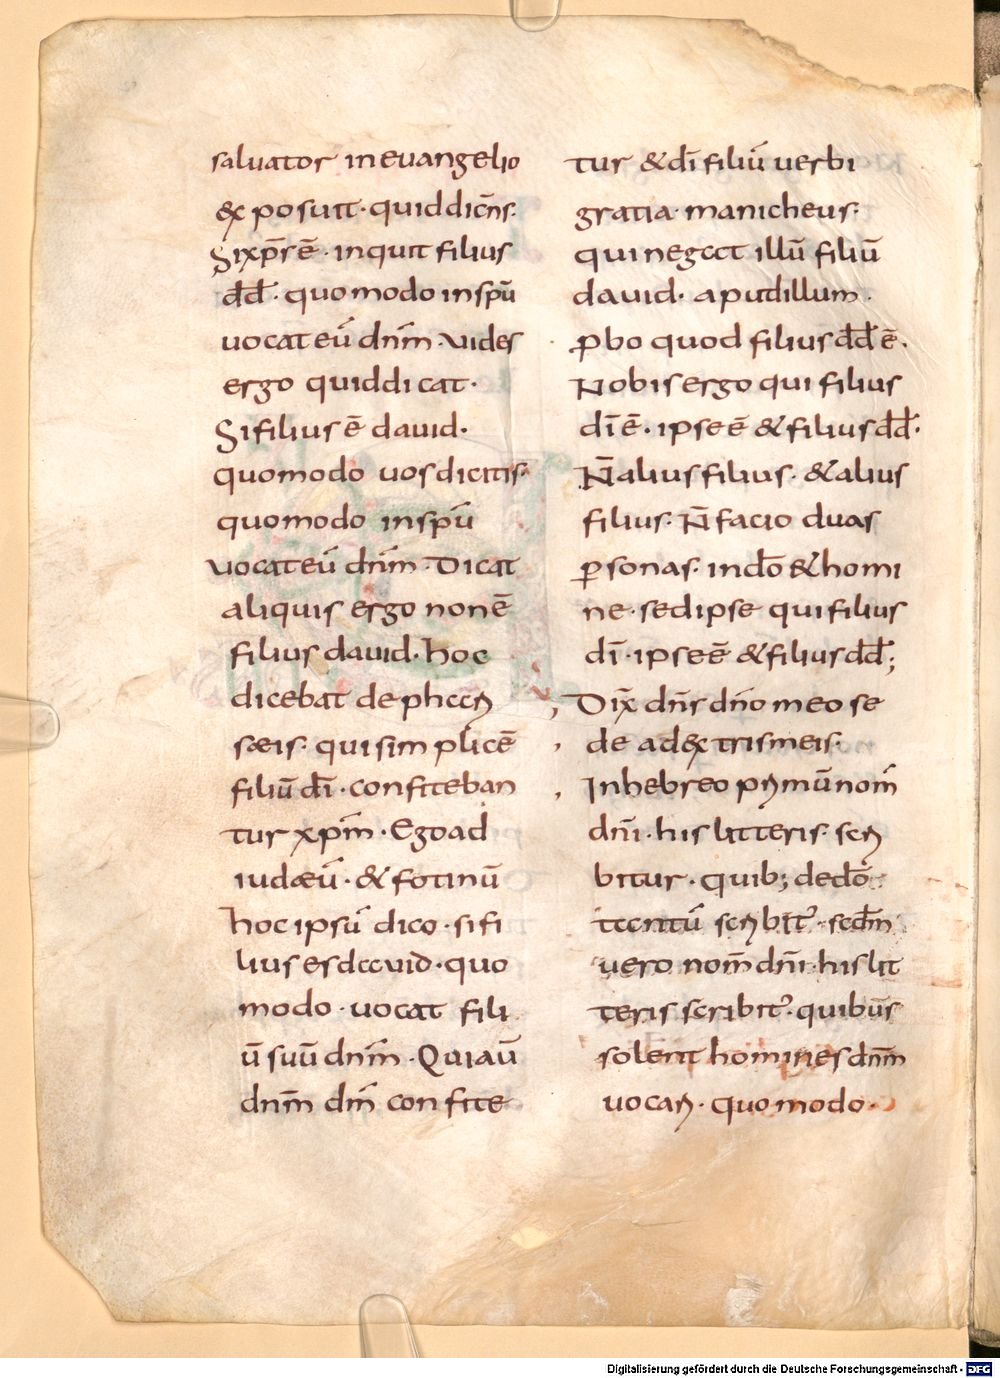 salvator in evangelio
&xposuit · quid dicēns·
Si xp̄s ē · inquit filius
dd̄ · quomodo in sp̄u
vocat eū dn̄m · vides
ergo quid dicat ·
Si filius ē david ·
quomodo vos dicitis ·
quomodo in sp̄u
vocat eū dn̄m · Dicat
aliquis ergo non ē
filius david · hoc
dicebat de phari
sæis · qui simplicē
filiū dī · confiteban
tur xp̄m · Ego ad
iudæū · & fotinū
hoc ipsū dico · si fi
lius es david · quo
modo · vocat fili
ū suū dn̄m · Quia ū
dn̄m dm̄ confite
tur & dī filiū verbi
gratia · manicheus ·
qui negat illū filiū
david · apud illum ·
ꝓbo quod filius dd̄ ē ·
Nobis ergo qui filius
dī ē · ipse ē & filius dd̄ ·
N̄ alius filius · & alius
filius · N̄ facio duas
ꝑsonas · in dō & homi
ne · sed ipse qui filius
dī · ipse ē & filius dd̄ ;
Dix̄ dn̄s dn̄o meo se
de ad &xtris meis ·
In hebreo primū nom̄
dn̄i · his litteris · scri
bitur · quib; de dō ·
tantū scribit᷒ · secd̄m
vero nom̄ dn̄i · his lit
teris scribit᷒ · quibus
solent homines dn̄m
vocari · quomodo ·
Digitalisierung gefördert durch die Deutsche Forschungsgemeinschaft - DFG